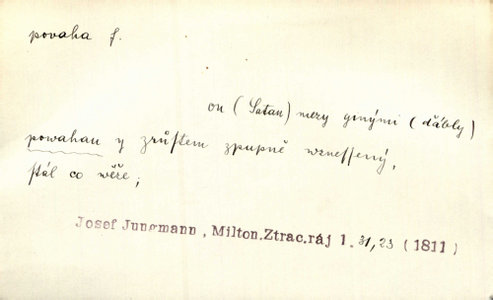 povaha f.
on (Satan) mezy ginými (ďábly)
powahau y zrůſtem zpupně wzneſſený,
ſtál co wěže;
Josef Jungmann, Milton.Ztrac.ráj 1. 31,23 (1811)